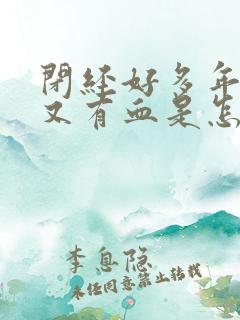 閉經好多年
又有血是怎
李息隐
未经同意禁止转载